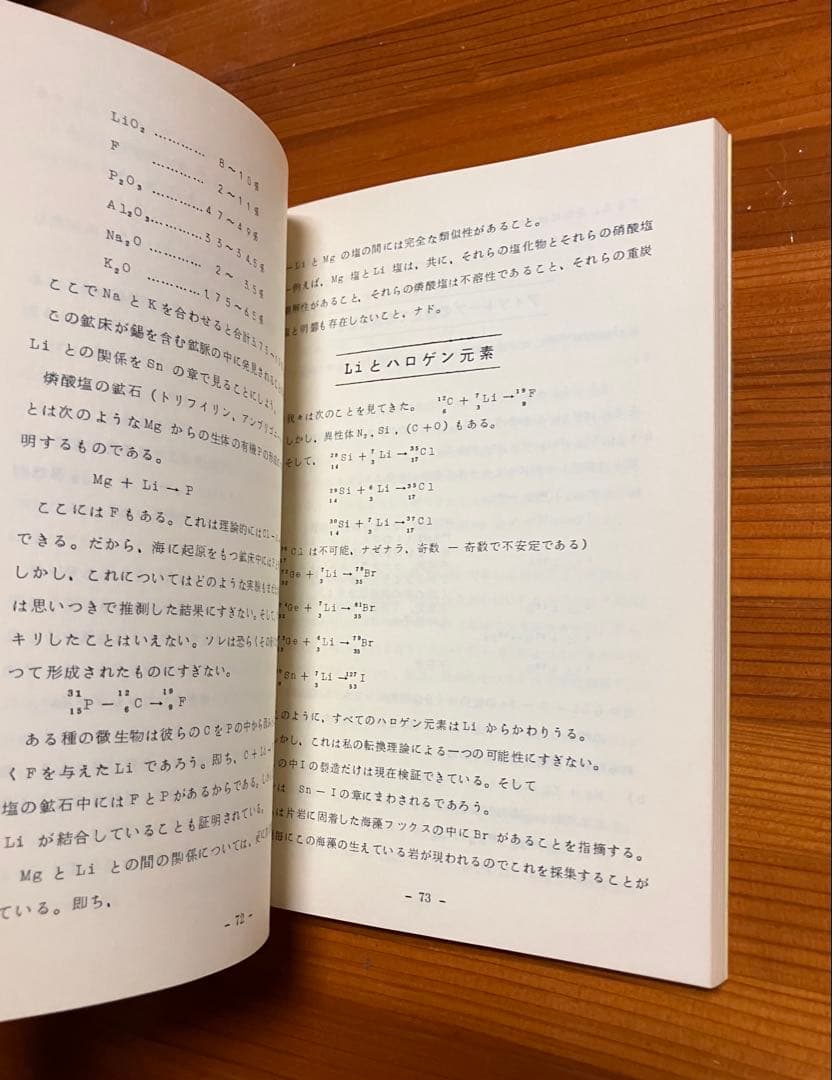 LiO₂ ………… 8〜10%
F ………… 2〜11%
P₂O₃ …………47〜49%
Al₂O₃…………33〜34.5%
Na₂O ………… 2〜 3.5%
K₂O …………1.75〜6.5%
ここでNaとKを合わせると合計3.75〜
この鉱床が錫を含む鉱脈の中に発見される
Li との関係をSnの章で見ることにしよう。
燐酸塩の鉱石(トリフイリン、アンブリゴ
とは次のようなMgからの生体の有機Pの
明するものである。
Mg + Li → P
ここにはFもある。これは理論的にはCl−
できる。だから、海に起原をもつ鉱床中には
しかし、これについてはどのような実験も
は思いつきで推測した結果にすぎない。そして、
キリしたことはいえない。ソレは恐らくその
つて形成されたものにすぎない。
³¹₁₅P − ¹²₆C → ¹⁹₉F
ある種の微生物は彼らのCをPの中から
くFを与えたLi であろう。即ち、C+Li−
塩の鉱石中にはFとPがあるからである。
Li が結合していることも証明されている。
MgとLi との間の関係については、
ている。即ち、
- 72 -
−LiとMgの塩の間には完全な類似性があること。
−例えば、Mg塩とLi塩は、共に、それらの塩化物とそれらの硝酸塩
溶解性があること、それらの燐酸塩は不溶性であること、それらの重炭
塩と明礬も存在しないこと、ナド。
Liとハロゲン元素
我々は次のことを見てきた。 ¹²₆C + ⁷₃Li → ¹⁹₉F
しかし、異性体N₂,Si,(C+O)もある。
そして、 ²⁸₁₄Si + ⁷₃Li → ³⁵₁₇Cl
²⁹₁₄Si + ⁶₃Li → ³⁵₁₇Cl
³⁰₁₄Si + ⁷₃Li → ³⁷₁₇Cl
Clは不可能,ナゼナラ、奇数 ー 奇数で不安定である)
Ge + ⁷₃Li → ⁷⁹₃₅Br
Ge + ⁷₃Li → ⁸¹₃₅Br
Ge + ⁶₃Li → ⁷⁹₃₅Br
Sn + ⁷₃Li → ¹²⁷₅₃I
このように、すべてのハロゲン元素はLiからかわりうる。
しかし、これは私の転換理論による一つの可能性にすぎない。
の中Iの製造だけは現在検証できている。そして
は Sn−Iの章にまわされるであろう。
は片岩に固着した海藻フックスの中にBrがあることを指摘する。
毎にこの海藻の生えている岩が現われるのでこれを採集することが
- 73 -